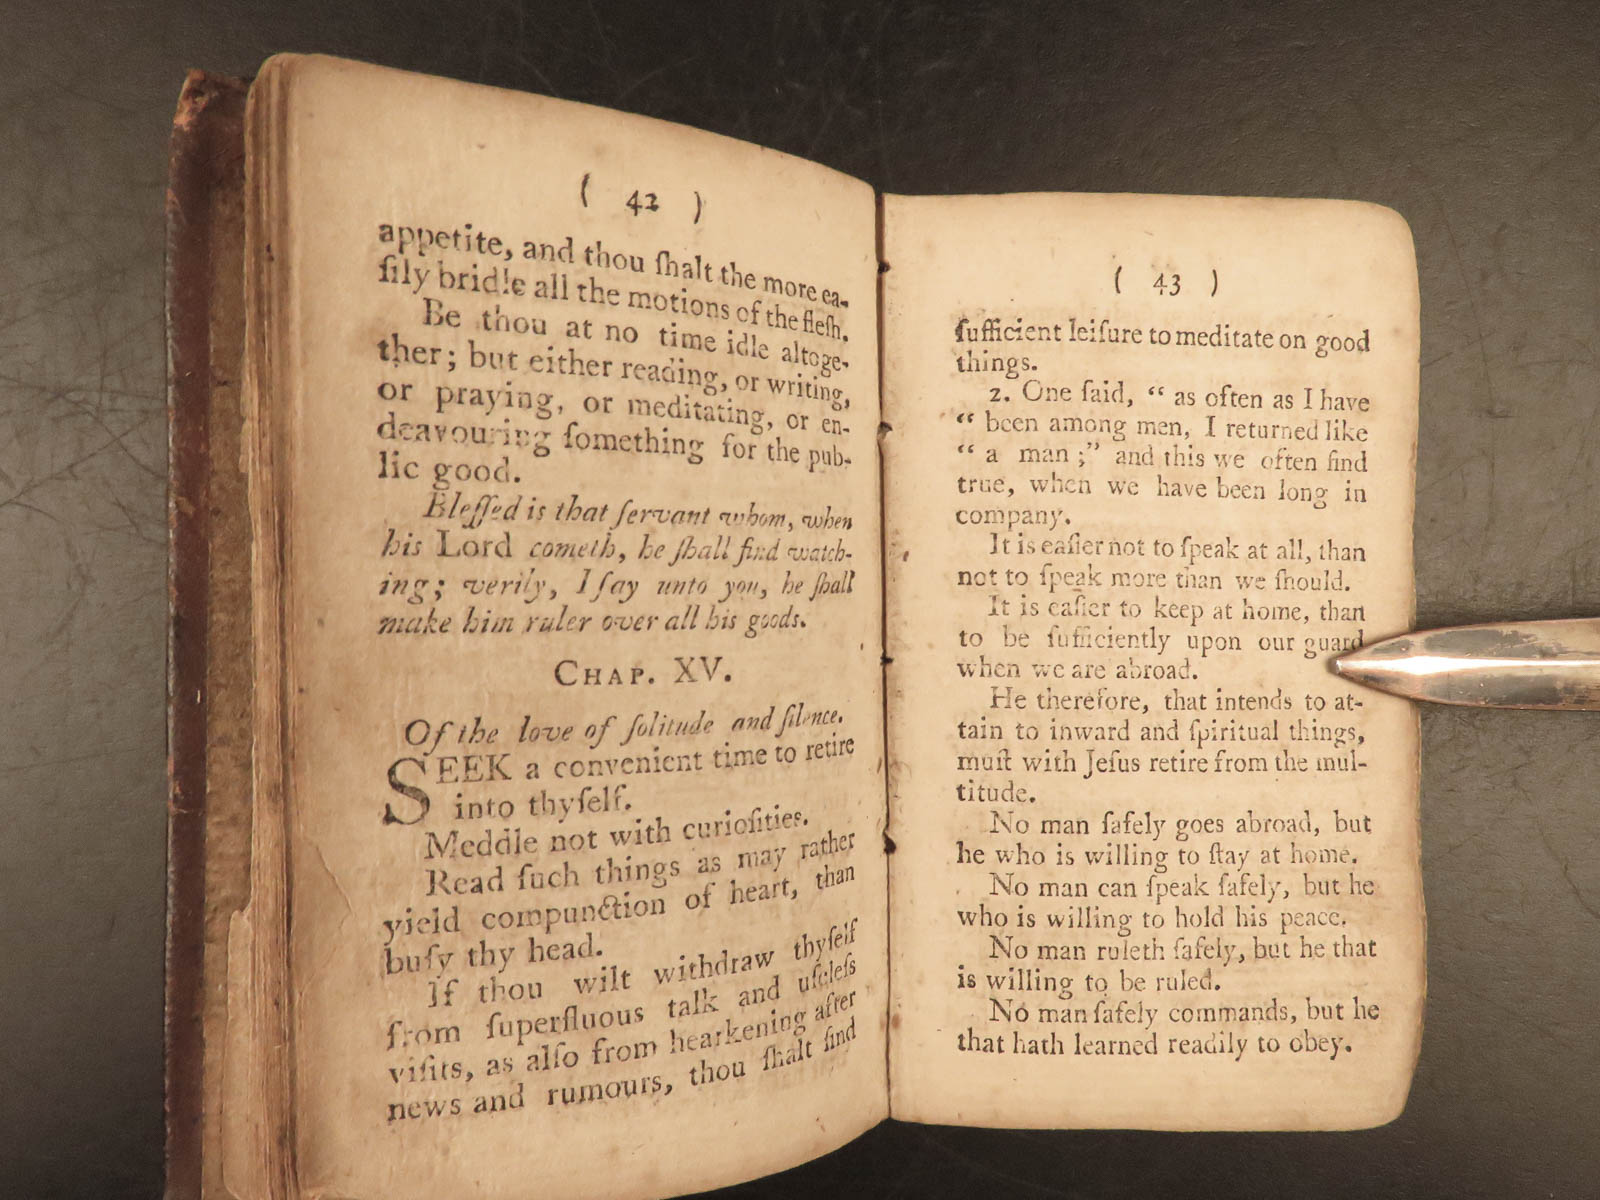 ( 42 )
appetite, and thou ſhalt the more ea-
ſily bridle all the motions of the fleſh.
Be thou at no time idle altoge-
ther; but either reading, or writing,
or praying, or meditating, or en-
deavouring ſomething for the pub-
lic good.
Bleſſed is that ſervant whom, when
his Lord cometh, he ſhall find watch-
ing; verily, I ſay unto you, he ſhall
make him ruler over all his goods.
CHAP. XV.
Of the love of ſolitude and ſilence.
SEEK a convenient time to retire
into thyſelf.
Meddle not with curioſities.
Read ſuch things as may rather
yield compunction of heart, than
buſy thy head.
If thou wilt withdraw thyſelf
from ſuperfluous talk and uſeleſs
viſits, as alſo from hearkening after
news and rumours, thou ſhalt find
( 43 )
ſufficient leiſure to meditate on good
things.
2. One ſaid, “ as often as I have
“ been among men, I returned like
“ a man ;” and this we often find
true, when we have been long in
company.
It is eaſier not to ſpeak at all, than
not to ſpeak more than we ſhould.
It is eaſier to keep at home, than
to be ſufficiently upon our guard
when we are abroad.
He therefore, that intends to at-
tain to inward and ſpiritual things,
muſt with Jeſus retire from the mul-
titude.
No man ſafely goes abroad, but
he who is willing to ſtay at home.
No man can ſpeak ſafely, but he
who is willing to hold his peace.
No man ruleth ſafely, but he that
is willing to be ruled.
No man ſafely commands, but he
that hath learned readily to obey.